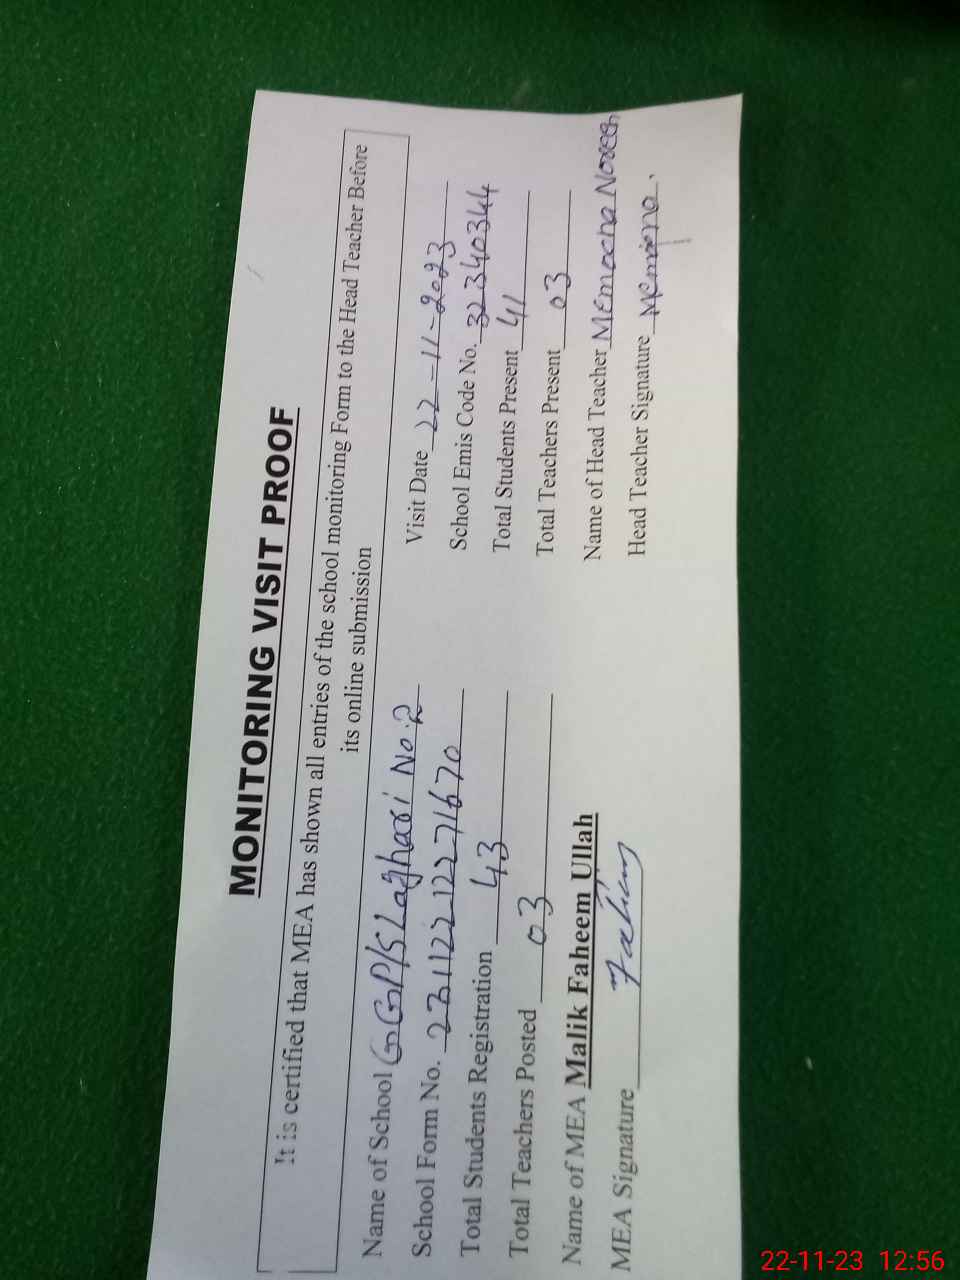 MONITORING VISIT PROOF
It is certified that MEA has shown all entries of the school monitoring Form to the Head Teacher Before
its online submission
Name of School GGP/S Laghari No.2
Visit Date 22-11-2023
School Form No. 231122122271670
School Emis Code No. 32340344
Total Students Registration 43
Total Students Present 41
Total Teachers Posted 03
Total Teachers Present 03
Name of MEA Malik Faheem Ullah
Name of Head Teacher
MEA Signature Fahim
Head Teacher Signature
22-11-23 12:56